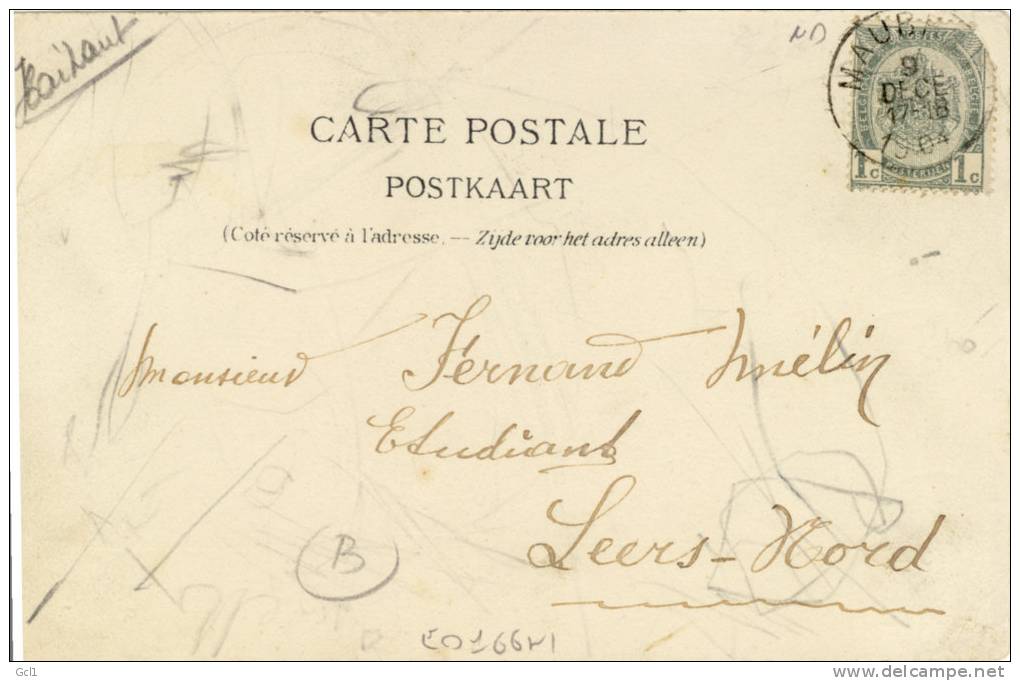 Hainaut
ND
MAUBR
9
DECE
17-18
1904
BELGIE BELGIQUE
1c 1c
CARTE POSTALE
POSTKAART
(Coté réservé à l'adresse. — Zijde voor het adres alleen)
Monsieur Fernand Mélin
Etudiant
Leers-Nord
B
E0166H
Gc1
www.delcampe.net